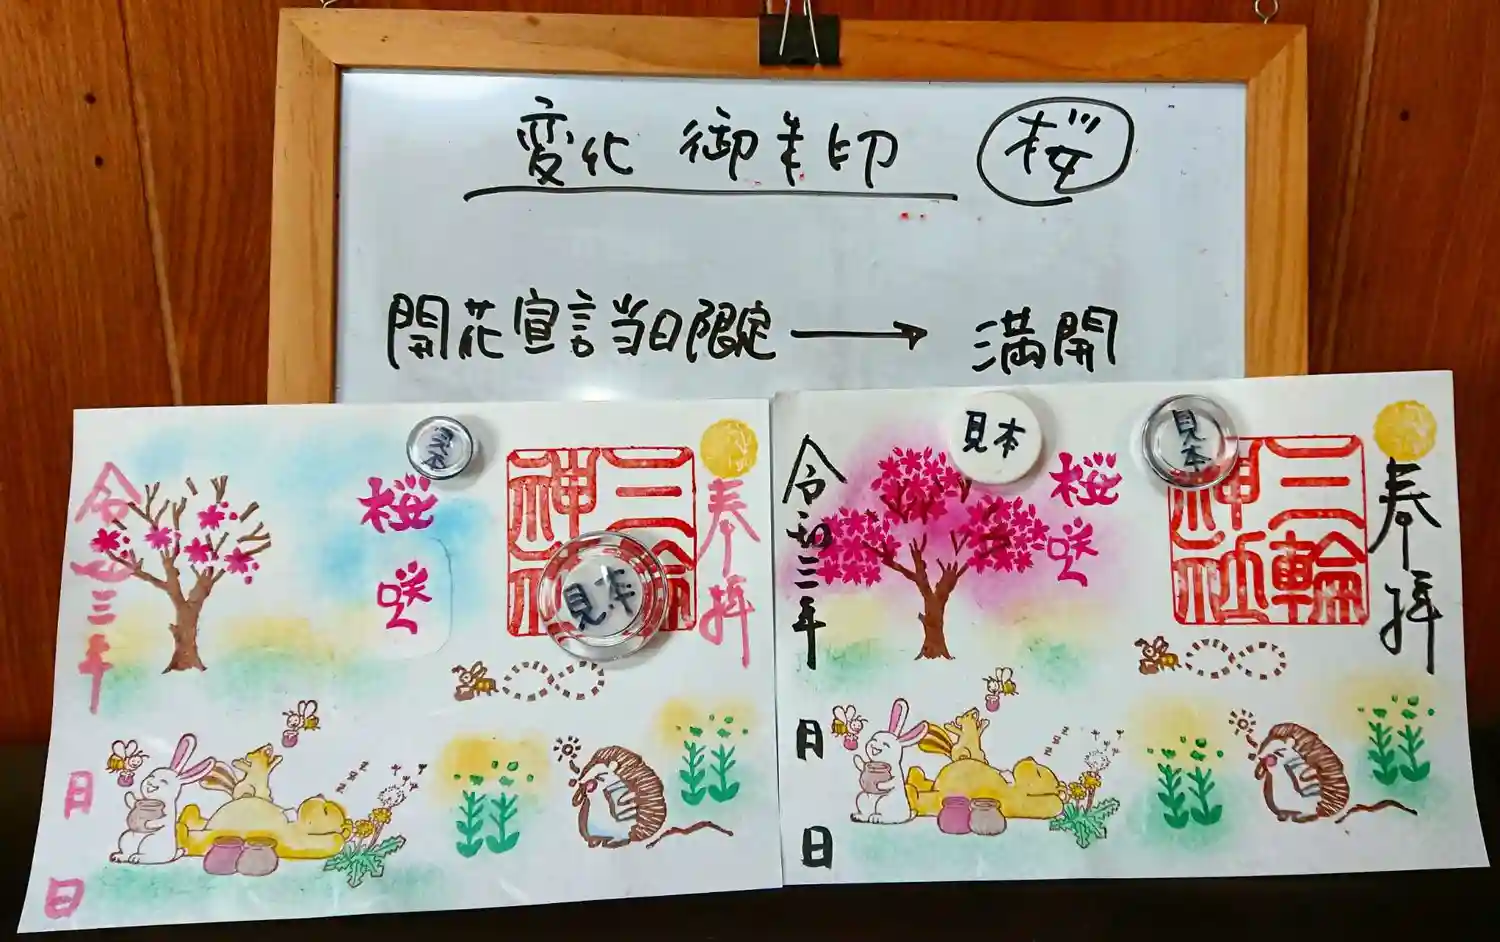 変化 御朱印 桜
開花宣言当日限定 → 満開
見本
奉拝
三輪神社
桜咲
令和三年
月
日
zzz
見本
見本
見本
奉拝
三輪神社
桜咲
令和三年
月
日
zzz